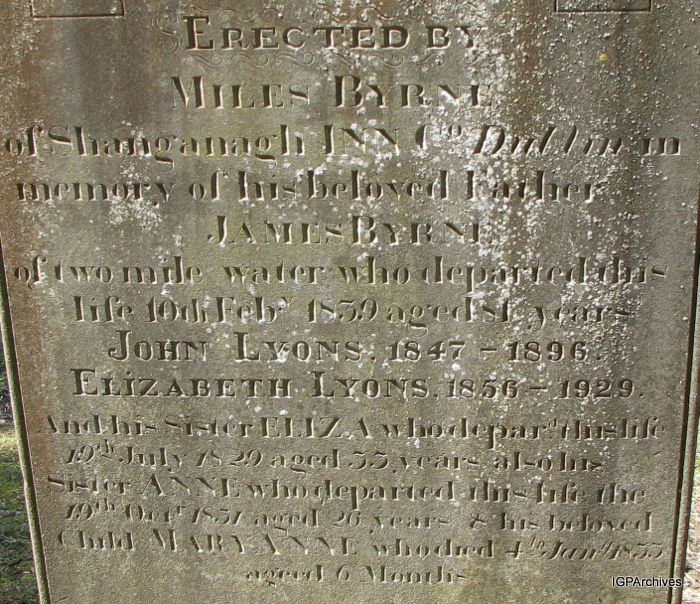 ERECTED BY
MILES BYRNE
of Shanganagh INN Co Dublin in
memory of his beloved Father
JAMES BYRNE
of two mile water who departed this
life 10th Feby 1839 aged 81 years
JOHN LYONS, 1847 – 1896.
ELIZABETH LYONS, 1856 – 1929.
And his Sister ELIZA who depard this life
19th July 1829 aged 33 years also his
Sister ANNE who departed this life the
19th Octr 1831 aged 26 years & his beloved
Child MARY ANNE who died 4th Jany 1833
aged 6 Months
IGPArchives